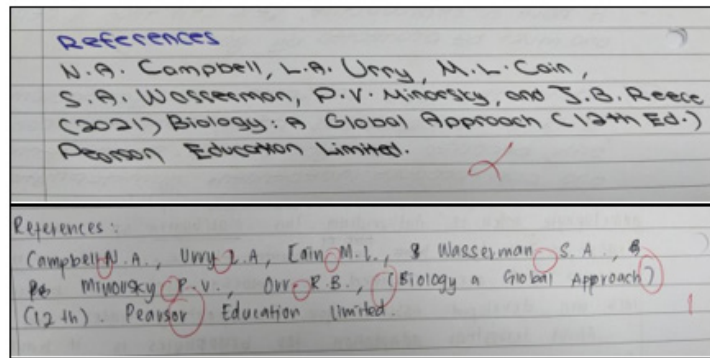 References
N.A. Campbell, L.A. Urry, M.L. Cain,
S.A. Wasserman, P.V. Minorsky, and J.B. Reece
(2021) Biology: A Global Approach (12th Ed.)
Pearson Education Limited.
References:
Campbell N.A., Urry L.A, Cain M.L, & Wasserman S.A., &
Minorsky P.V., Orr R.B., (Biology a Global Approach)
(12 th). Pearson Education limited.